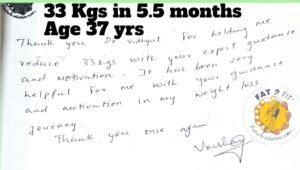 33 Kgs in 5.5 months
Age 37 yrs
Thank you Dr Vidhyut for helding me
reduce 33kgs with your expert guidance
and motivation. It has been very
helpful for me with your guidance
and motivation in my weight loss
Journey.
Thank you once again
FAT 2 FIT